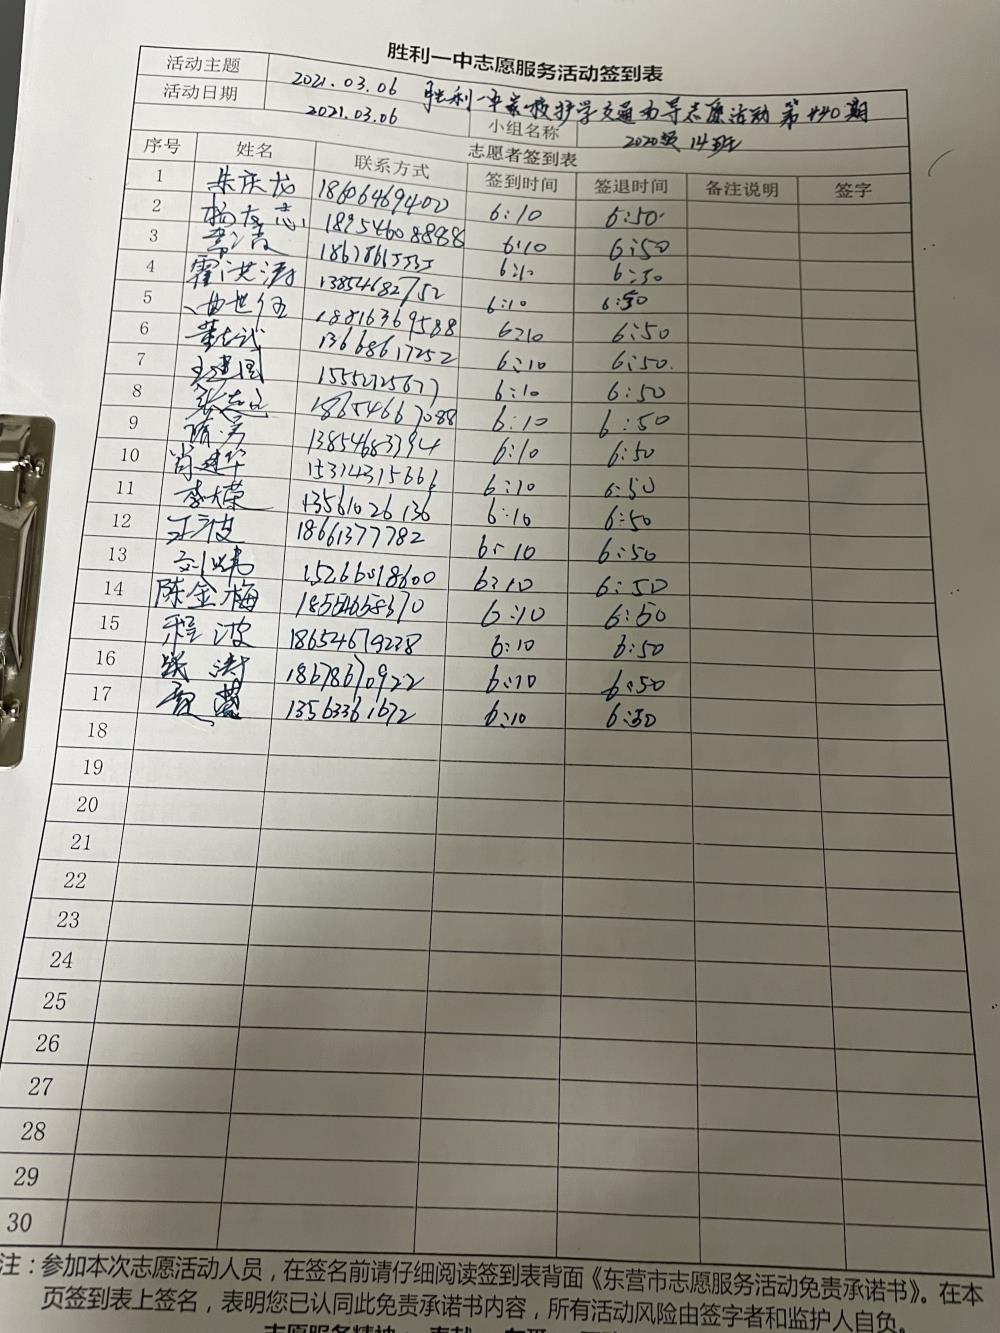 胜利一中志愿服务活动签到表
活动主题 2021.03.06 胜利一中家校护学交通劝导志愿活动 第440期
活动日期 2021.03.06 小组名称 2020级14班
志愿者签到表
序号 姓名 联系方式 签到时间 签退时间 备注说明 签字
1 朱庆龙 18606469400 6:10 6:50
2 18954608888 6:10 6:50
3 6:10 6:50
4 霍洪涛 13854682752 6:10 6:50
5 曲世伍 18816369588 6:10 6:50
6 13668617252 6:10 6:50
7 王建国 15552125677 6:10 6:50
8 18654667088 6:10 6:50
9 13854683394 6:10 6:50
10 肖建华 15314315666 6:10 6:50
11 13561026136 6:10 6:50
12 18661377782 6:10 6:50
13 15266018600 6:10 6:50
14 陈金梅 18554658370 6:10 6:50
15 程波 18654679228 6:10 6:50
16 18678670922 6:10 6:50
17 13563361672 6:10 6:50
18
19
20
21
22
23
24
25
26
27
28
29
30
注：参加本次志愿活动人员，在签名前请仔细阅读签到表背面《东营市志愿服务活动免责承诺书》。在本
页签到表上签名，表明您已认同此免责承诺书内容，所有活动风险由签字者和监护人自负。